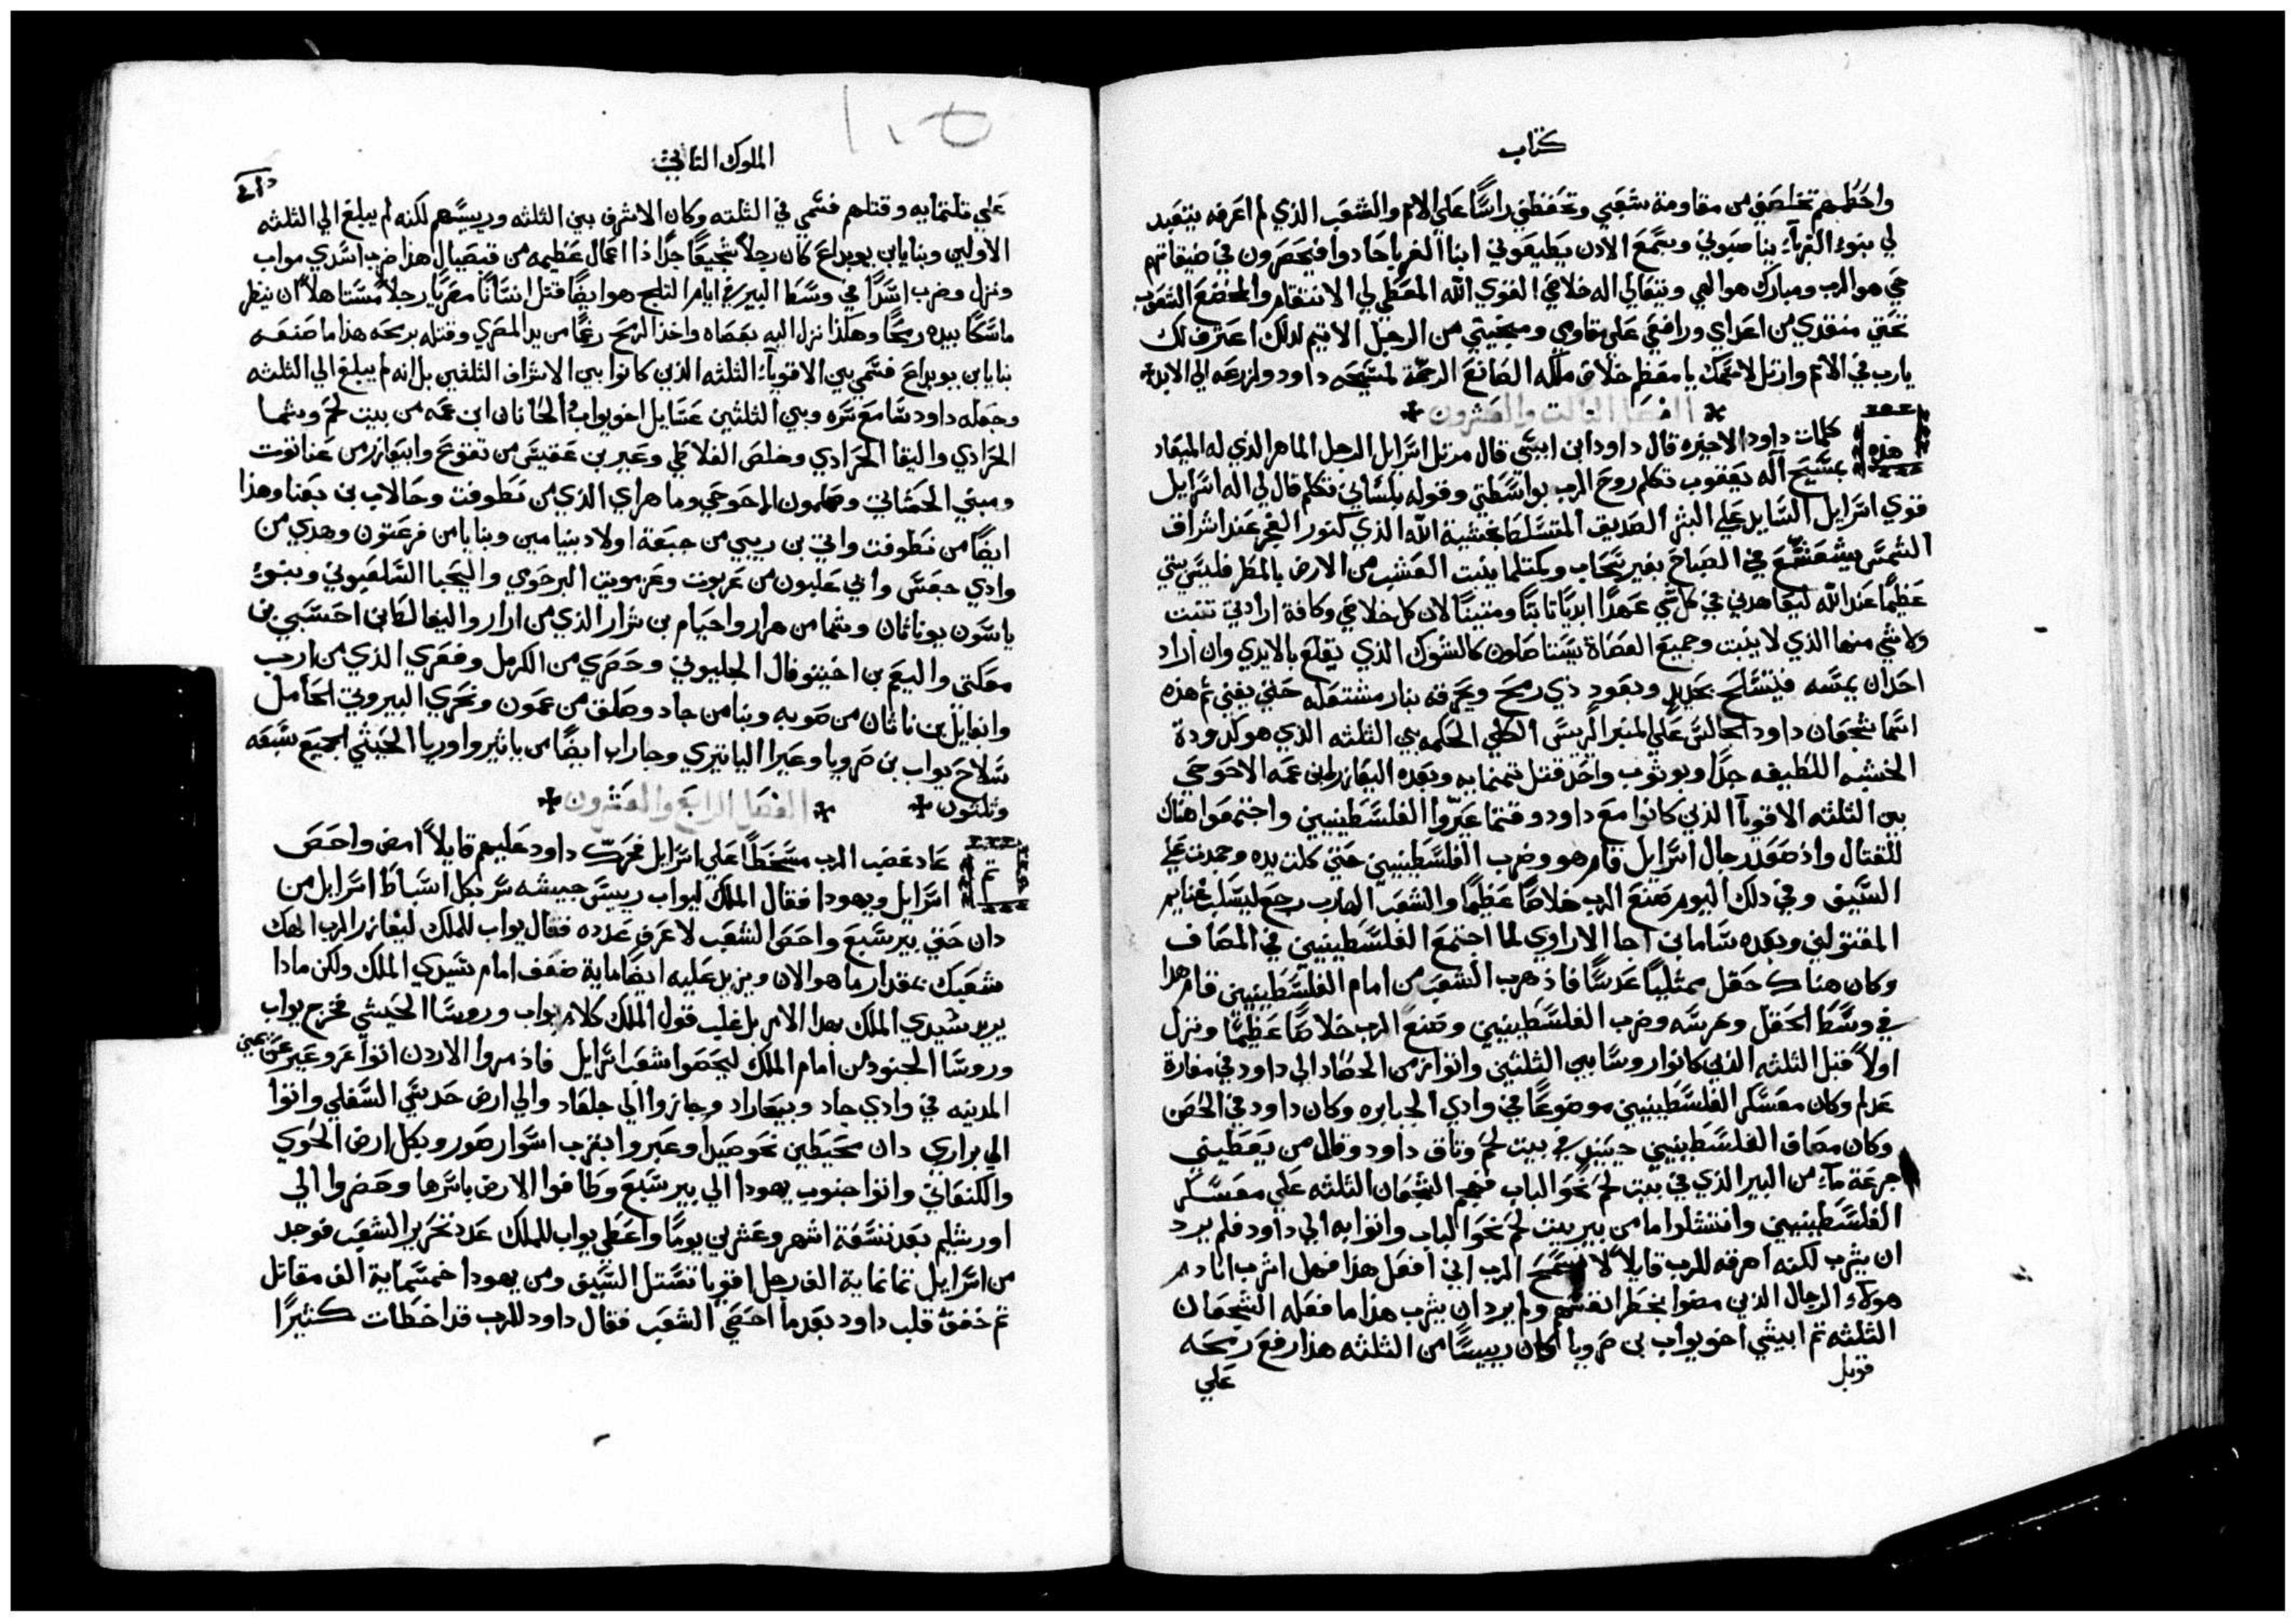 كتاب
واحطهم تخلصني من مقاومة شعبي وتحفظني راسًا علي الامم والشعب الذي لم اعرفه يتعبد
لي بنوء الغربآء ينا صبوني وبسمع الادن يطيعوني ابنا الغربا حادوا وانحصرون في ضيقاتهم
حي هو الرب ومبارك هو الهي ويتعالي اله خلاصي القوي الله المعطي لي الانتقام والمخضع الشعوب
تحتي منقدي من اعداي ورافعي علي مقاومي ومنجيني من الرجل الاثيم لدلك اعترف لك
يارب في الامم وارتل لاسمك يا معظم خلاص ملكه الصانع الرحمة لمسيحه داود ولزرعه الي الابد
الفصل الثالث والعشرون
هذه كلمات داود الاخيره قال داود ابن ايسي قال مرتل اسرايل الرجل الماهر الذي له الميعاد
بمسيح اله يعقوب تكلم روح الرب بواسطتي وقوله بلساني تكلم قال لي اله اسرايل
قوي اسرايل السايد علي البشر الصديق المتسلط بخشية الله الذي كنور الفجر عند اشراف
الشمس يشعشع في الصباح بغير سحاب وكمثلما ينبت العشب من الارض بالمطر فليس بيتي
عظيمًا عند الله ليعاهدني في كل شي عهدًا ابديًا ثابتًا ومتينًا لان كل خلاصي وكافة ارادتي تنبت
ولا شي منها الذي لا ينبت وجميع العصاة يستاصلون كالشوك الذي يقلع بالايدي وان اراد
احد ان يمسه فليتسلح بحديد وبعود ذي رمح ويحرقه بنار مشتعله حتي يفني ثم هذه
اسما شجعان داود الجالس علي المنبر الريس الكلي الحكمه بين الثلثه الذي هو كدودة
الخشبه اللطيفه جدًا وبوثوب واحد قتل تمنمايه وبعده اليعازر ابن عمه الاحوحي
بين الثلثه الاقويآ الذين كانوا مع داود وقتما عيروا الفلسطينيين واجتمعوا هناك
للقتال واذ صعد رجال اسرايل قام هو وضرب الفلسطينيين حتي كلت يده وجمدت علي
السيف وفي دلك اليوم صنع الرب خلاصًا عظيمًا والشعب الهارب رجع ليسلب غنايم
المقتولين وبعده ساما بن اجا الاراوي لما اجتمع الفلسطينيين في المصاف
وكان هناك حقل ممتليًا عدسًا فاذ هرب الشعب من امام الفلسطينيين قام هذا
في وسط الحقل وحرسه وضرب الفلسطينيين وصنع الرب خلاصًا عظيمًا ونزل
اولاً قبل الثلثه الذين كانوا روسا بين الثلثين واتوا زمن الحصاد الي داود في مغارة
عدلم وكان معسكر الفلسطينيين موضوعًا في وادي الجبابره وكان داود في الحصن
وكان مصاف الفلسطينيين حينيد في بيت لحم وتاق داود وقال من يعطيني
جرعة مآء من البير الذي في بيت لحم نحو الباب فهجم الشجعان الثلثه علي معسكر
الفلسطينيين وانتشلوا ما من بير بيت لحم نحو الباب واتوا به الي داود فلم يرد
ان يشرب لكنه اهرقه للرب قايلاً لا يسمح الرب اني افعل هذا فهل اشرب انا دم
هولآء الرجال الذين مضوا بخطر انفسهم ولم يرد ان يشرب هذا ما فعله الشجعان
الثلثه ثم ابيشي اخو يواب بن صرويا كان رييسًا من الثلثه هذا رفع رمحه
قوبل
علي
١٠٥
الملوك الثاني
علي ثلثمايه وقتلهم فسمي في الثلثه وكان الاشرف بين الثلثه وريسهم لكنه لم يبلغ الي الثلثه
الاولين وبنايا بن يويداع كان رجلاً شجيعًا جدًا ذا اعمال عظيمه من قبصيال هذا ضرب اسدي مواب
ونزل وضرب اسدًا في وسط البير في ايام التلج هو ايضًا قتل انسانًا مصريًا رجلاً مستاهلاً ان ينظر
ماسكًا بيده رمحًا وهكذا نزل اليه بعصاه واخذ الرمح رغمًا من يد المصري وقتله برمحه هذا ما صنعه
بنايا بن يويداع فسمي بين الاقويآء الثلثه الذين كانوا بين الاشراف الثلثين بل انه لم يبلغ الي الثلثه
وجعله داود سامع سره وبين الثلثين عسايل اخو يواب والحانان ابن عمه من بيت لحم وشما
الحرادي واليقا الحرادي وخلص الفلاطي وعير بن عقيس من تقوع وابيعازر من عناتوت
ومبني الحشاتي وصلمون الاحوحي وماهراي الذي من نطوفت وحالاب بن بعنا وهذا
ايضًا من نطوفت واتي بن ريبي من جبعة اولاد بنيامين وبنايا من فرعتون وهدي من
وادي جعس وابي علبون من عربوت وعزموت البرحوي واليحبا السلعبوني وبنوء
ياسون يوناثان وشما من هرار واحيام بن شرار الذي من ارار واليفالط بن احسبي بن
معكتي واليعم بن اخيتوفال الجليوني وحصري من الكرمل وفعري الذي من ارب
وايغايل بن ناثان من صوبه وبنا من جاد وصلق من عمون ونحري البيروتي الحامل
سلاح يواب بن صرويا وعيرا الياتيري وجاراب ايضًا من ياتير واوريا الحيثي الجميع سبعه
وثلثون
الفصل الرابع والعشرون
ثم عاد غضب الرب مسخطًا علي اسرايل فحرك داود عليهم قايلاً امض واحص
اسرايل ويهودا فقال الملك ليواب رييس جيشه سر بكل اسباط اسرايل من
دان حتي بير سبع واحص الشعب لاعرف عدده فقال يواب للملك ليفازر الرب الهك
شعبك بمقدار ما هو الان ويزيد عليه ايضًا ماية ضعف امام سيدي الملك ولكن مادا
يريد سيدي الملك بهدا الامر بل غلب قول الملك كلام يواب وروسا الجيش فخرج يواب
وروسا الجنود من امام الملك ليحصوا شعب اسرايل فاذ مروا الاردن اتوا عروعير عن يمين
المدينه في وادي جاد وبيعازاد وجازوا الي جلعاد والي ارض حدسي السفلي واتوا
الي براري دان محيطين نحو صيدا وعبروا بقرب اسوار صور وبكل ارض الحوي
والكنعاني واتوا جنوب يهودا الي بير سبع وطافوا الارض باسرها وحضروا الي
اورشليم بعد تسعة اشهر وعشرين يومًا واعطي يواب للملك عدد تحرير الشعب فوجد
من اسرايل تمانماية الف رجل اقويا تستل السيف ومن يهودا خمسماية الف مقاتل
ثم خفق قلب داود بعد ما احصي الشعب فقال داود للرب قد اخطات كثيرًا